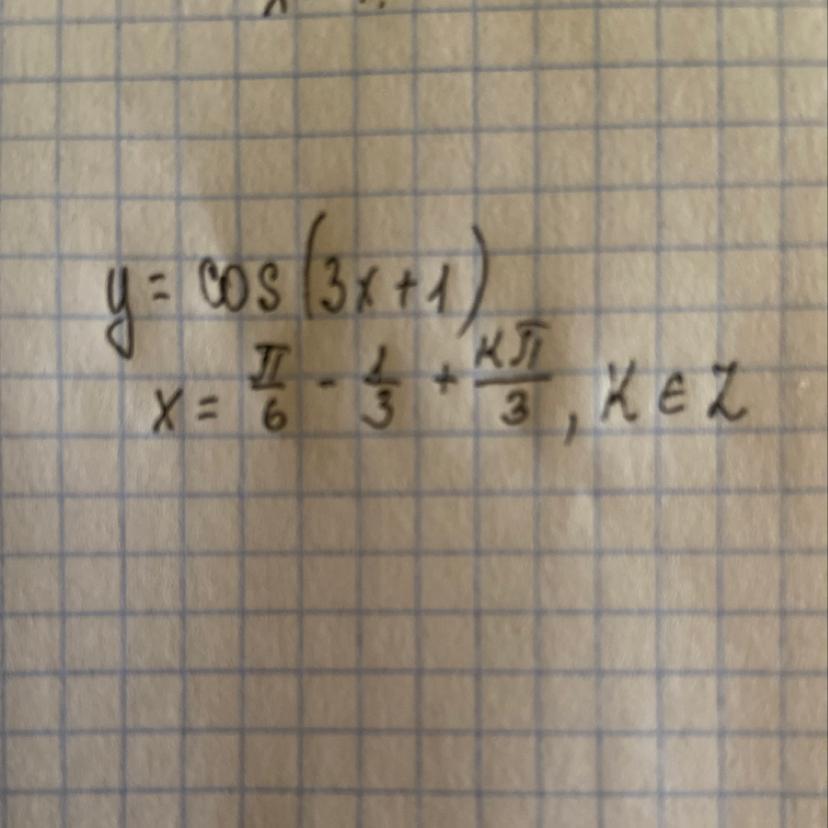 y = cos(3x + 1)
x = π/6 - 1/3 + kπ/3, k ∈ Z